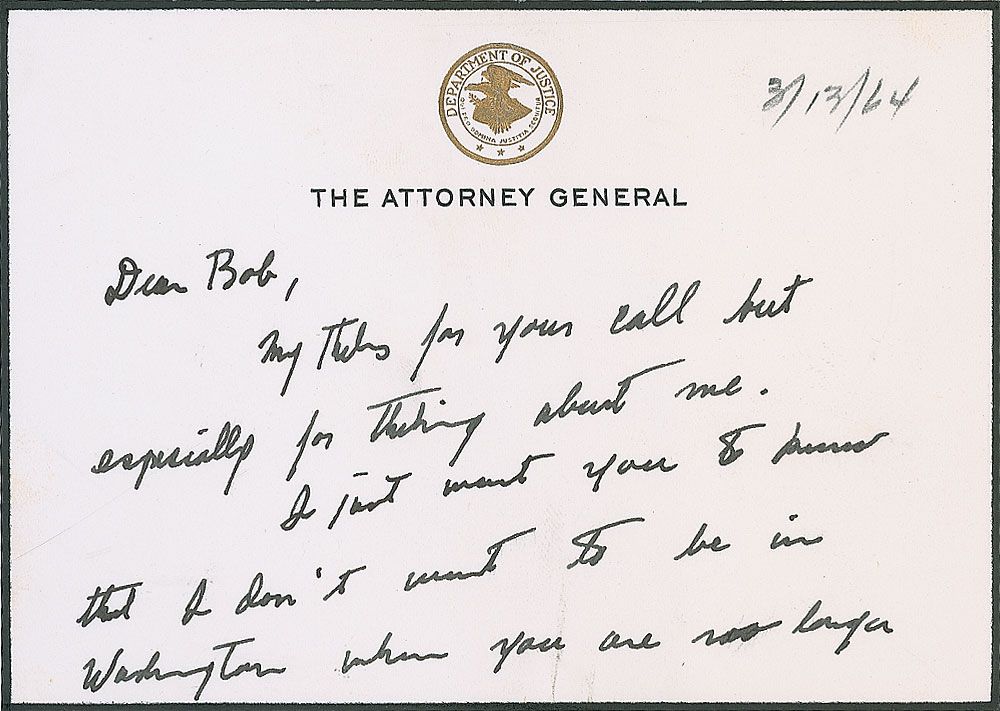 DEPARTMENT OF JUSTICE
QUI PRO DOMINA JUSTITIA SEQUITUR
3/13/64
THE ATTORNEY GENERAL
Dear Bob,
My thks for your call but
especially for thking about me.
I just want you to know
that I don't want to be in
Washington when you are no longer